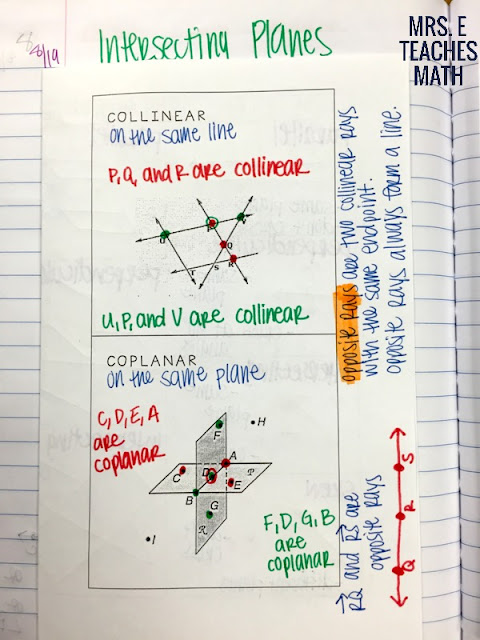 MRS. E
TEACHES
MATH
8/19
Intersecting Planes
COLLINEAR
on the same line
P, Q, and R are collinear
U
P
V
Q
R
T
S
U, P, and V are collinear
COPLANAR
on the same plane
C, D, E, A
are
coplanar
F
H
A
C
D
E
P
B
G
R
I
F, D, G, B
are
coplanar
opposite rays are two collinear rays
with the same endpoint.
opposite rays always form a line.
RQ and RS are
opposite rays
S
R
Q